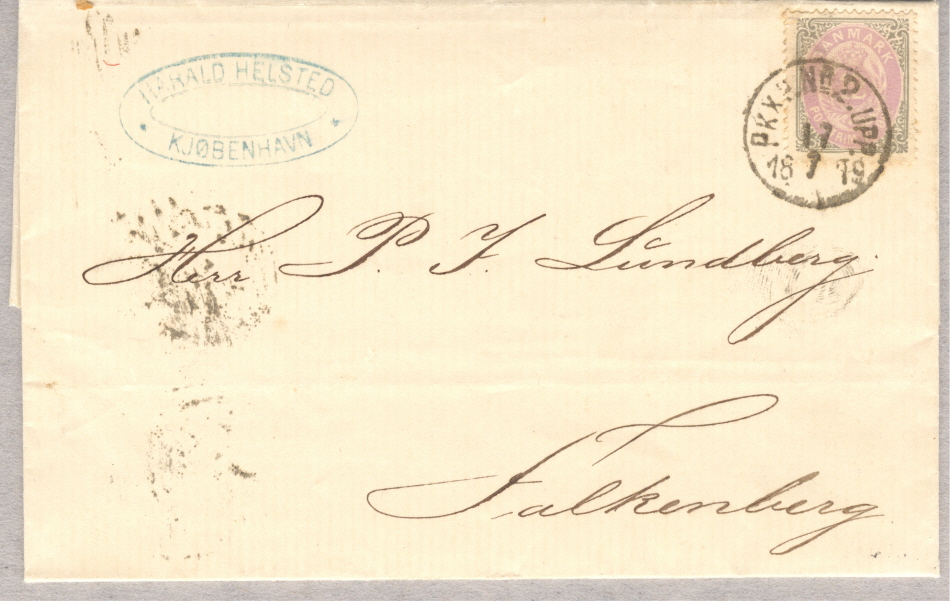 HARALD HELSTED
KJØBENHAVN
DANMARK
PKXP. Nr 2. UPP
17
18 7 79
Herr P. J. Lundberg.
Falkenberg